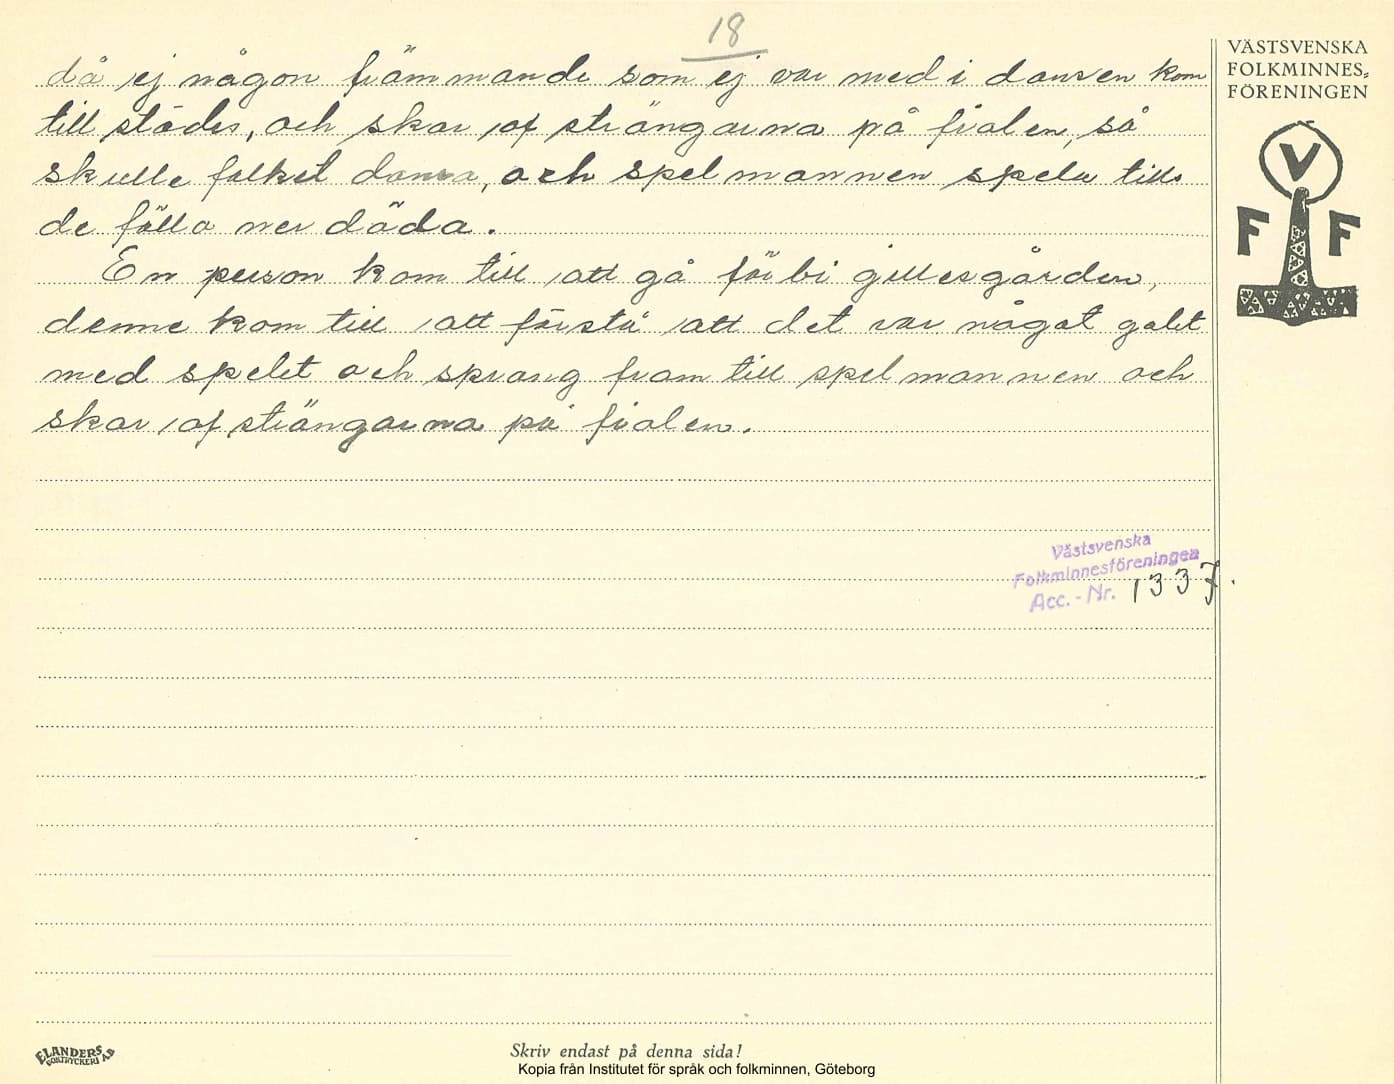 18
VÄSTSVENSKA
FOLKMINNES-
FÖRENINGEN
V
F F
då ej någon främmande som ej var med i dansen kom
till städes, och skar af strängarna på fiolen, så
skulle folket dansa, och spelmannen spela tills
de föllo ner döda.
En person kom till att gå förbi gillesgården,
denne kom till att förstå att det var något galet
med spelet och sprang fram till spelmannen och
skar af strängarna på fiolen.
Västsvenska
Folkminnesföreningen
Acc.-Nr. 1337.
ELANDERS
BOKTRYCKERI AB
Skriv endast på denna sida!
Kopia från Institutet för språk och folkminnen, Göteborg